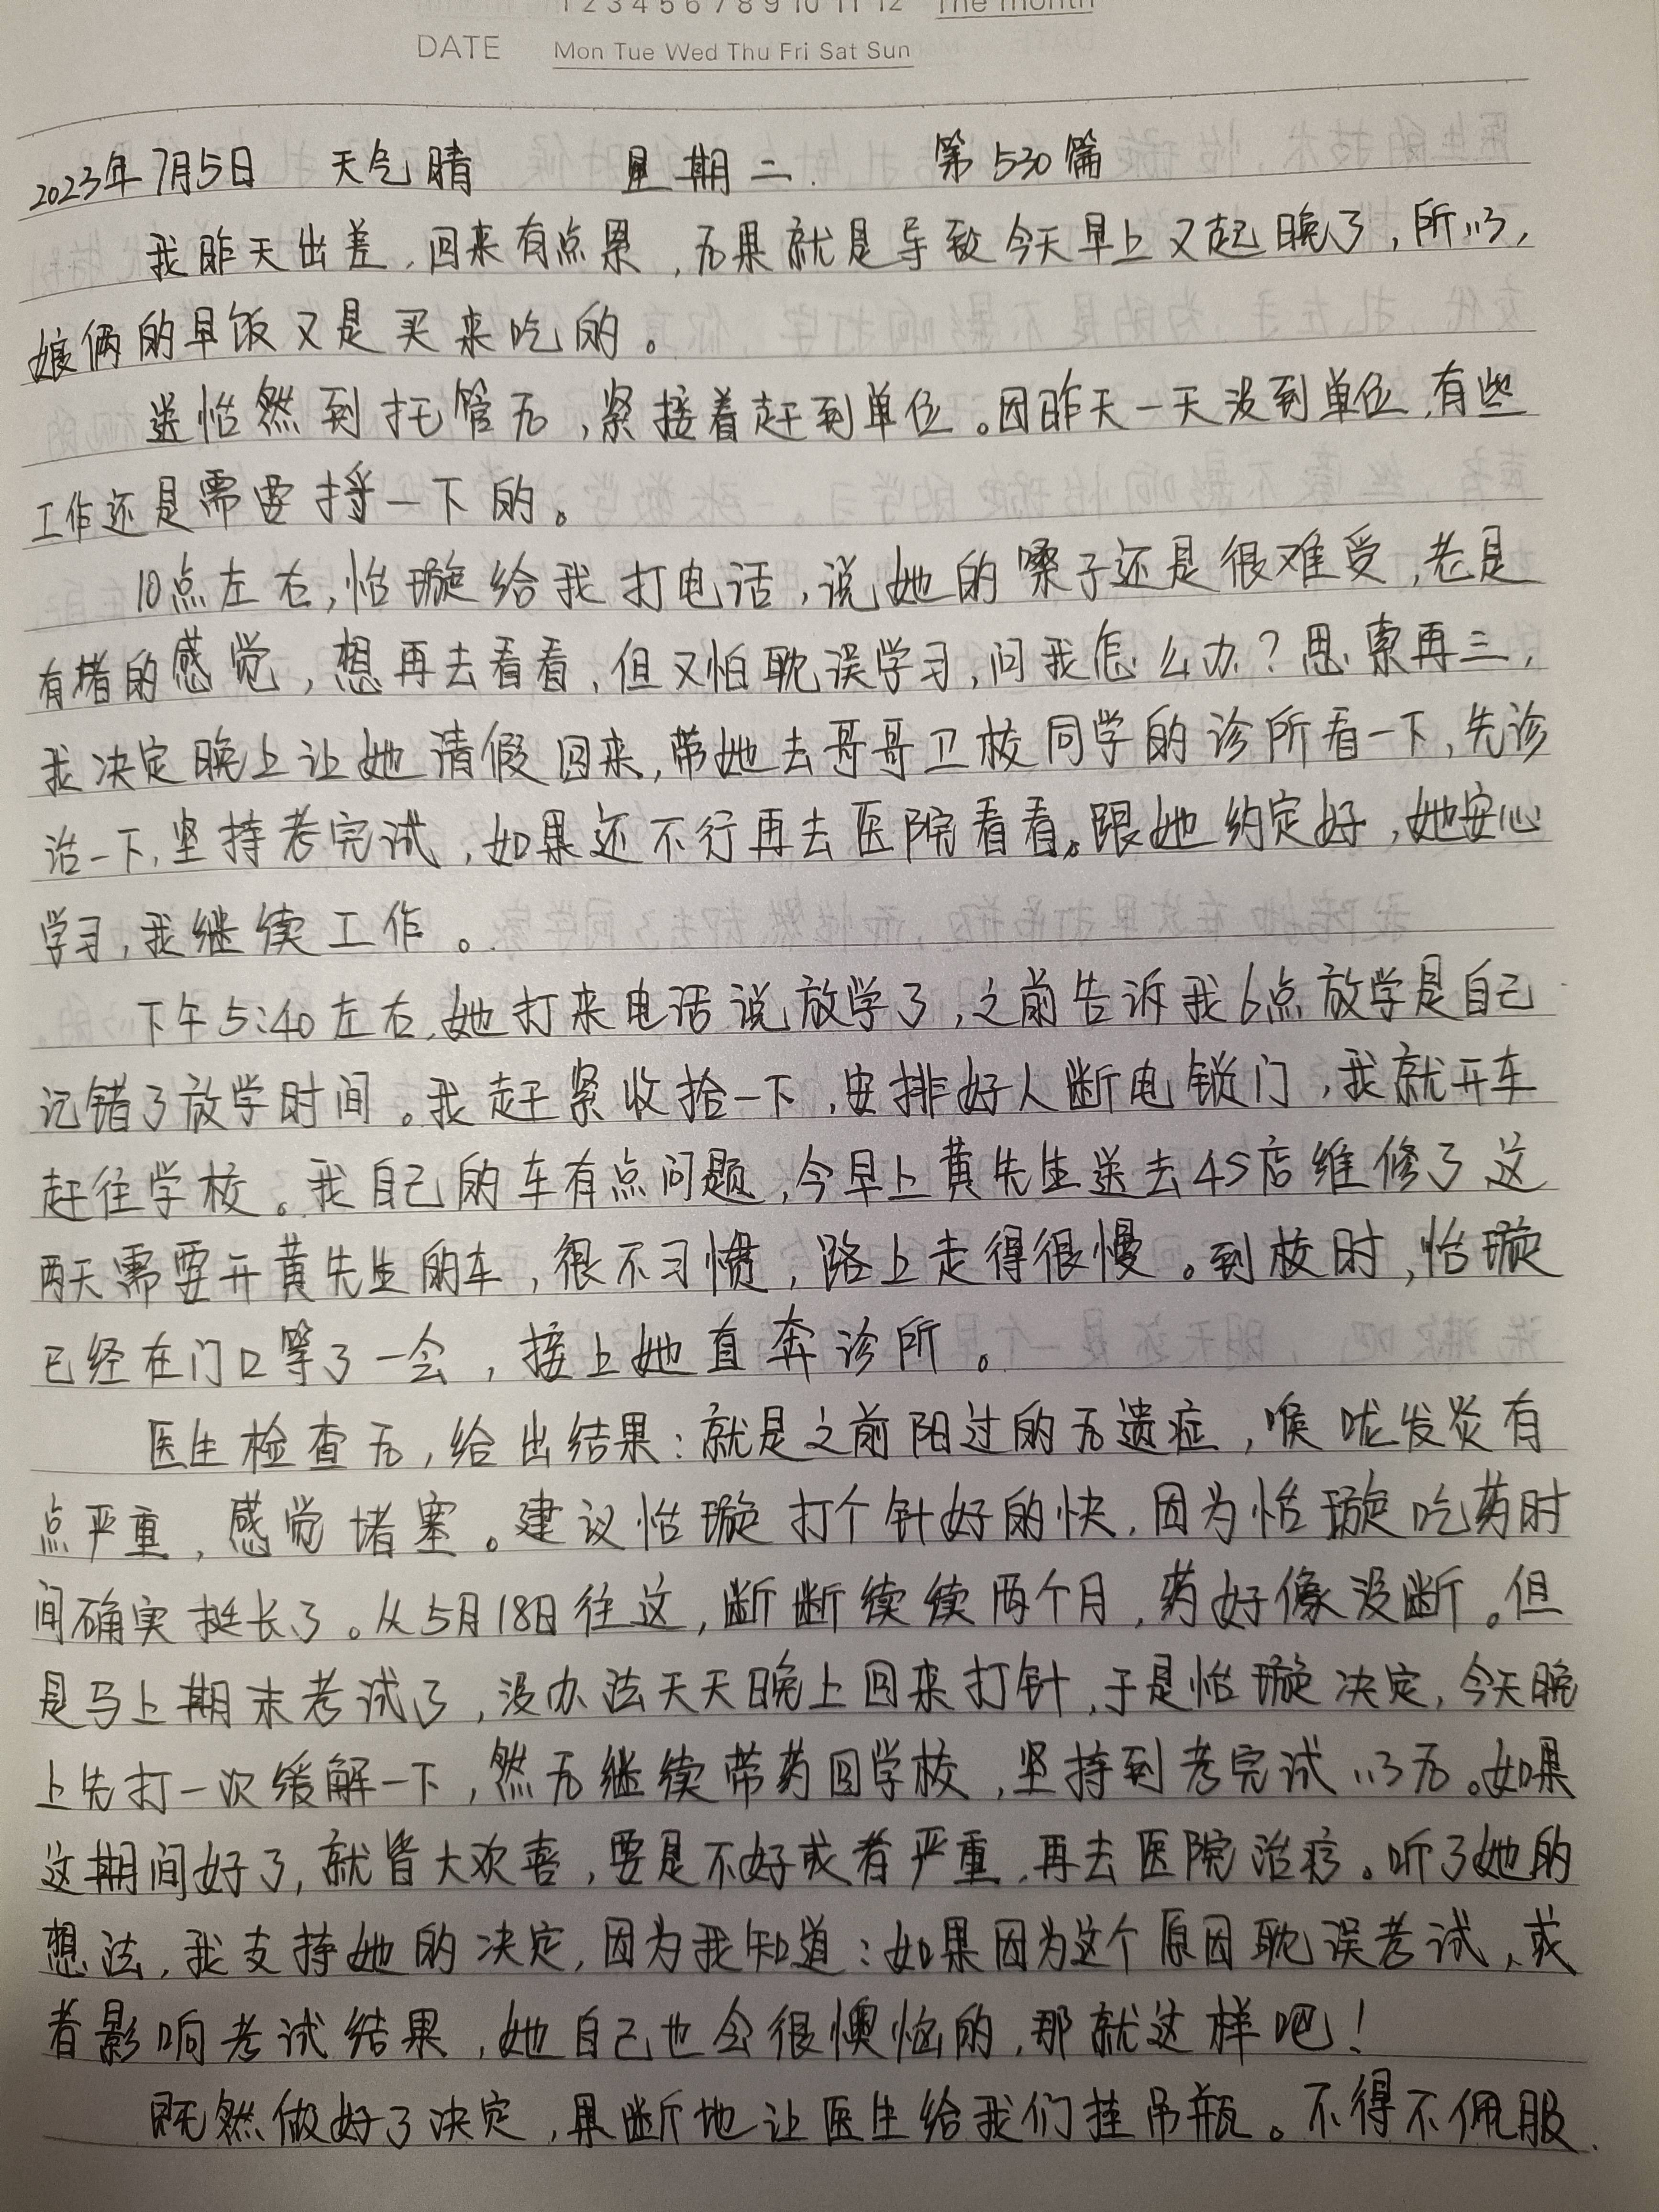 1 2 3 4 5 6 7 8 9 10 11 12 The month
DATE Mon Tue Wed Thu Fri Sat Sun
2023年7月5日 天气晴 星期二. 第530篇
我昨天出差,回来有点累,后果就是导致今天早上又起晚了,所以,
娘俩的早饭又是买来吃的。
送怡然到托管后,紧接着赶到单位。因昨天一天没到单位,有些
工作还是需要捋一下的。
10点左右,怡璇给我打电话,说她的嗓子还是很难受,老是
有堵的感觉,想再去看看,但又怕耽误学习,问我怎么办?思索再三,
我决定晚上让她请假回来,带她去哥哥卫校同学的诊所看一下,先诊
治一下,坚持考完试,如果还不行再去医院看看。跟她约定好,她安心
学习,我继续工作。
下午5:40左右,她打来电话说放学了,之前告诉我6点放学是自己
记错了放学时间。我赶紧收拾一下,安排好人断电锁门,我就开车
赶往学校。我自己的车有点问题,今早上黄先生送去4S店维修了这
两天需要开黄先生的车,很不习惯,路上走得很慢。到校时,怡璇
已经在门口等了一会,接上她直奔诊所。
医生检查后,给出结果:就是之前阳过的后遗症,喉咙发炎有
点严重,感觉堵塞。建议怡璇打个针好的快,因为怡璇吃药时
间确实挺长了。从5月18日往这,断断续续两个月,药好像没断。但
是马上期末考试了,没办法天天晚上回来打针,于是怡璇决定,今天晚
上先打一次缓解一下,然后继续带药回学校,坚持到考完试以后。如果
这期间好了,就皆大欢喜,要是不好或者严重,再去医院治疗。听了她的
想法,我支持她的决定,因为我知道:如果因为这个原因耽误考试,或
者影响考试结果,她自己也会很懊恼的,那就这样吧!
既然做好了决定,果断地让医生给我们挂吊瓶。不得不佩服